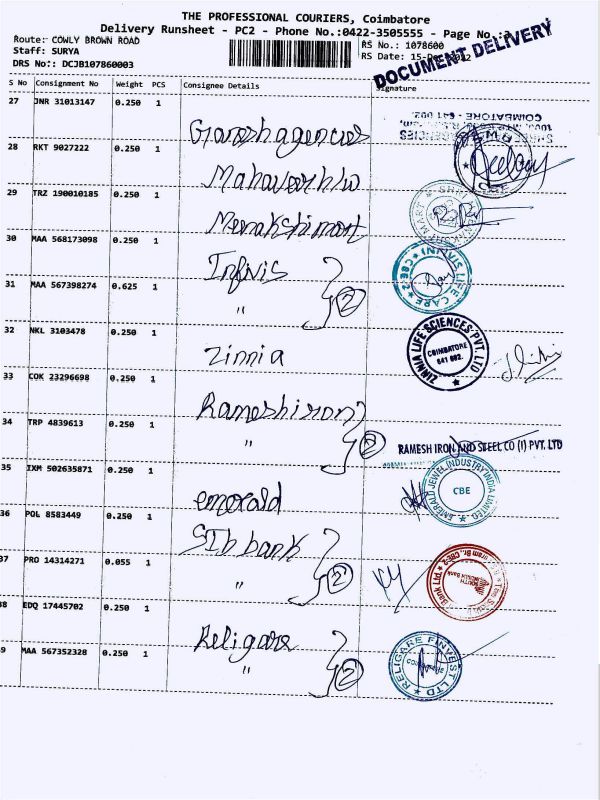 THE PROFESSIONAL COURIERS, Coimbatore
Delivery Runsheet - PC2 - Phone No.:0422-3505555 - Page No.:3
Route: COWLY BROWN ROAD
RS No.: 1078600
Staff: SURYA
RS Date: 15-De
DRS No:: DCJB107860003
DOCUMENT DELIVERY
S No Consignment No Weight PCS Consignee Details Signature
27 JNR 31013147 0.250 1 Ganesh agencies
COIMBATORE - 641 002.
28 RKT 9027222 0.250 1 Mahaveer h/w
29 TRZ 190010185 0.250 1 Menakshimart
30 MAA 568173098 0.250 1 Infivis
INNVIS LIFE CARE * CBE-2 *
31 MAA 567398274 0.625 1 " 2
32 NKL 3103478 0.250 1 Zinnia
ZINNIA LIFE SCIENCES PVT. LTD
COIMBATORE
641 002.
33 COK 23296698 0.250 1 Rameshiron
34 TRP 4839613 0.250 1 " 2
RAMESH IRON AND STEEL CO (I) PVT. LTD
35 IXM 502635871 0.250 1 emerald
EMERALD JEWEL INDUSTRY INDIA LIMITED
CBE
36 POL 8583449 0.250 1 SIb bank
37 PRO 14314271 0.055 1 " 2
SOUTH
INDIAN Bank
38 EDQ 17445702 0.250 1 Religare
39 MAA 567352328 0.250 1 " 2
RELIGARE FINVEST LTD